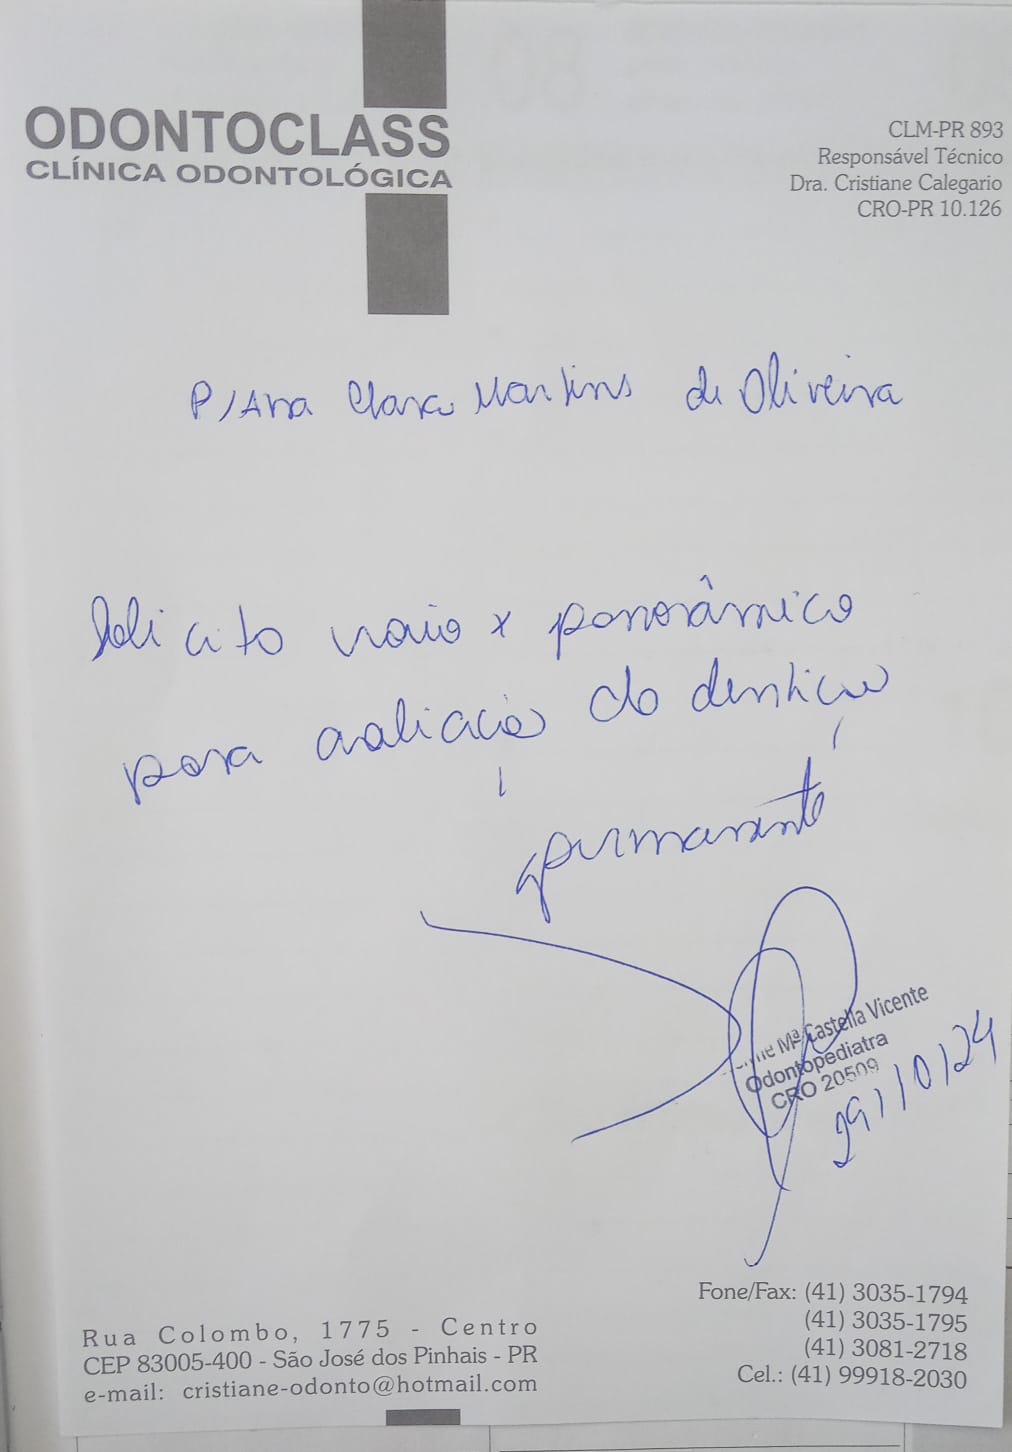 ODONTOCLASS
CLÍNICA ODONTOLÓGICA
CLM-PR 893
Responsável Técnico
Dra. Cristiane Calegario
CRO-PR 10.126
P/ Ana Clara Martins de Oliveira
Solicito raio x panorâmico
para avaliação da dentição
permanente
Mª Castella Vicente
Odontopediatra
CRO 20509
29/10/24
Rua Colombo, 1775 - Centro
CEP 83005-400 - São José dos Pinhais - PR
e-mail: cristiane-odonto@hotmail.com
Fone/Fax: (41) 3035-1794
(41) 3035-1795
(41) 3081-2718
Cel.: (41) 99918-2030